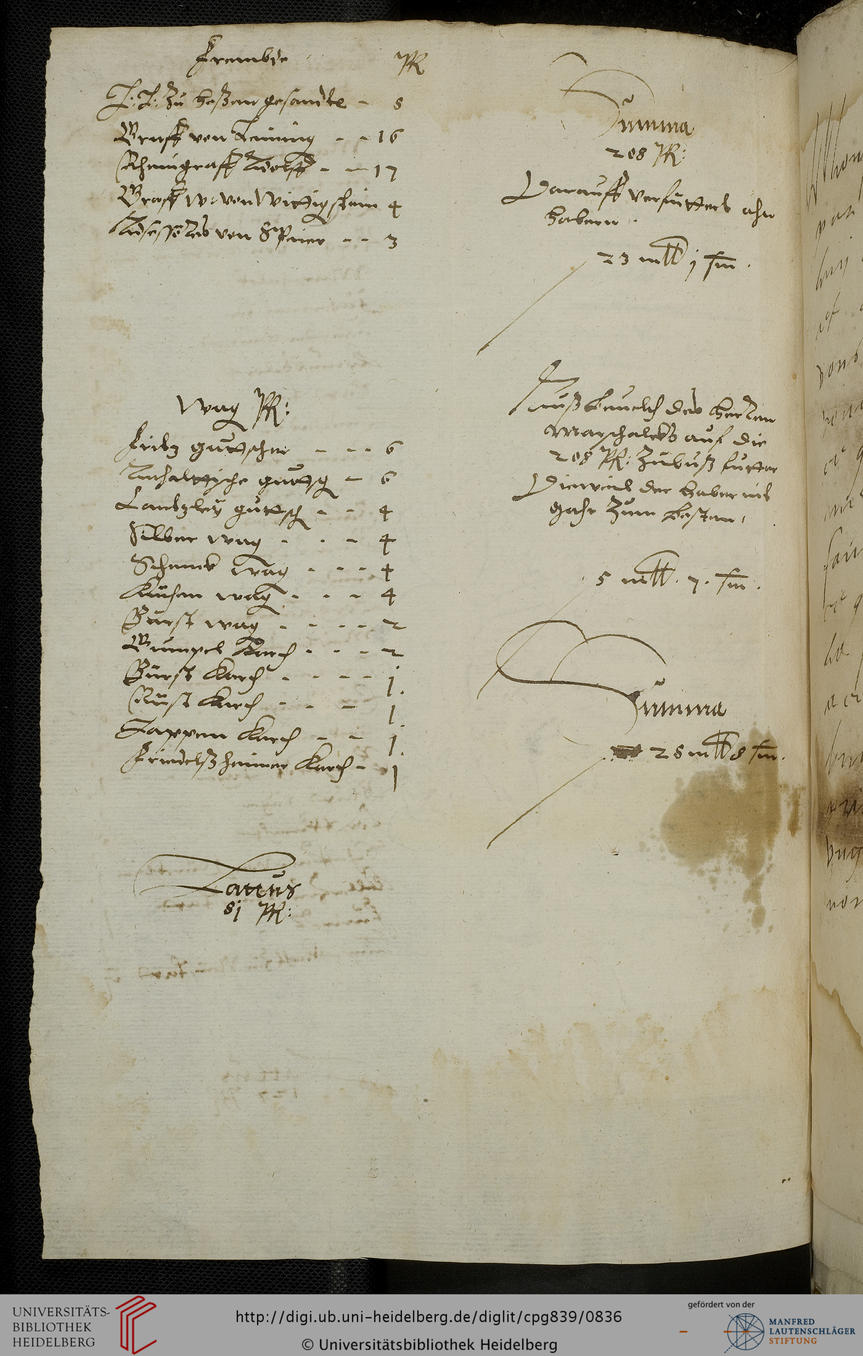 Frembde PR
L: L: zu hessen gesandte - 8
Graff von Leining - - 16
Rheingraff Adolff - - 17
Graff W: von Wittigstein 4
von Speier - - 3
Wag PR:
Fritz gutscher - - - 6
Anhaltische gutsch - 6
Cantzley gutsch - - 4
Silber wag - - - 4
Schenck wag - - - 4
Kuchen wag - - - 4
Burst wag - - - - 2
Gumpel Karch - - - 2
Burst Karch - - - - 1
Rust Karch - - - 1.
Lappen Karch - - 1.
Friedelsheimer Karch - 1
Lattus
81 PR:
Summa
208 PR:
Darauff verfuttert ahn
habern.
23 mltt j fm.
Auß beuelch des herren
Marschalcks auf die
208 PR: zubuß futter
Dieweil der haber nit
gahr zum besten,
5 mltt. 7. fm.
Summa
28 mltt 8 fm.
UNIVERSITÄTS-
BIBLIOTHEK
HEIDELBERG
http://digi.ub.uni-heidelberg.de/diglit/cpg839/0836
© Universitätsbibliothek Heidelberg
gefördert von der
MANFRED
LAUTENSCHLÄGER
STIFTUNG